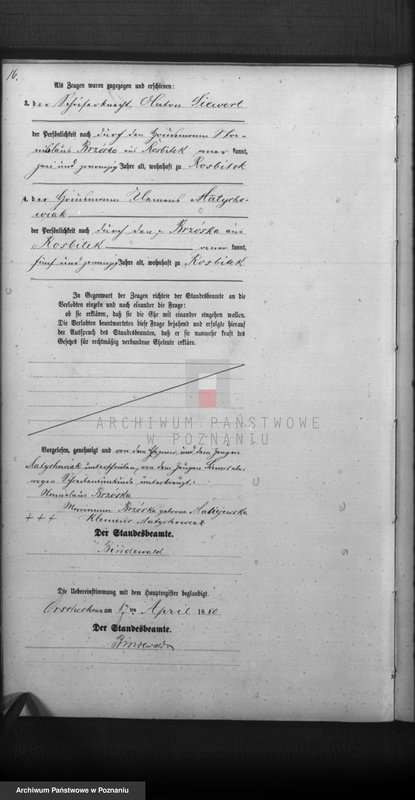 16.
Als Zeugen waren zugezogen und erschienen:
3. der Schäferknecht Anton Siewert
der Persönlichkeit nach durch den Häuslermann Sta-
nislaus Brzóska aus Rosbitek aner kannt,
zwei und zwanzig Jahre alt, wohnhaft zu Rosbitek
4. der Klemens Matycho-
wiak
der Persönlichkeit nach durch den p. Brzóska aus
Rosbitek aner kannt,
fünf und zwanzig Jahre alt, wohnhaft zu Rosbitek
In Gegenwart der Zeugen richtete der Standesbeamte an die
Verlobten einzeln und nach einander die Frage:
ob sie erklären, daß sie die Ehe mit einander eingehen wollen.
Die Verlobten beantworteten diese Frage bejahend und erfolgte hierauf
der Ausspruch des Standesbeamten, daß er sie nunmehr kraft des
Gesetzes für rechtmäßig verbundene Eheleute erkläre.
ARCHIWUM PAŃSTWOWE
W POZNANIU
Vorgelesen, genehmigt und von den Eheleuten und dem Zeugen
Matychowiak unterschrieben, von dem Zeugen Siewert
wegen Schreibensunkunde unterkreuzt.
Stanislaus Brzóska
Marianna Brzóska geborne Matijewska
+++ Klemens Matychowiak
Der Standesbeamte.
Bindewald
Die Uebereinstimmung mit dem Hauptregister beglaubigt.
am 17 ten April 1880
Der Standesbeamte.
Bindewald
Archiwum Państwowe w Poznaniu